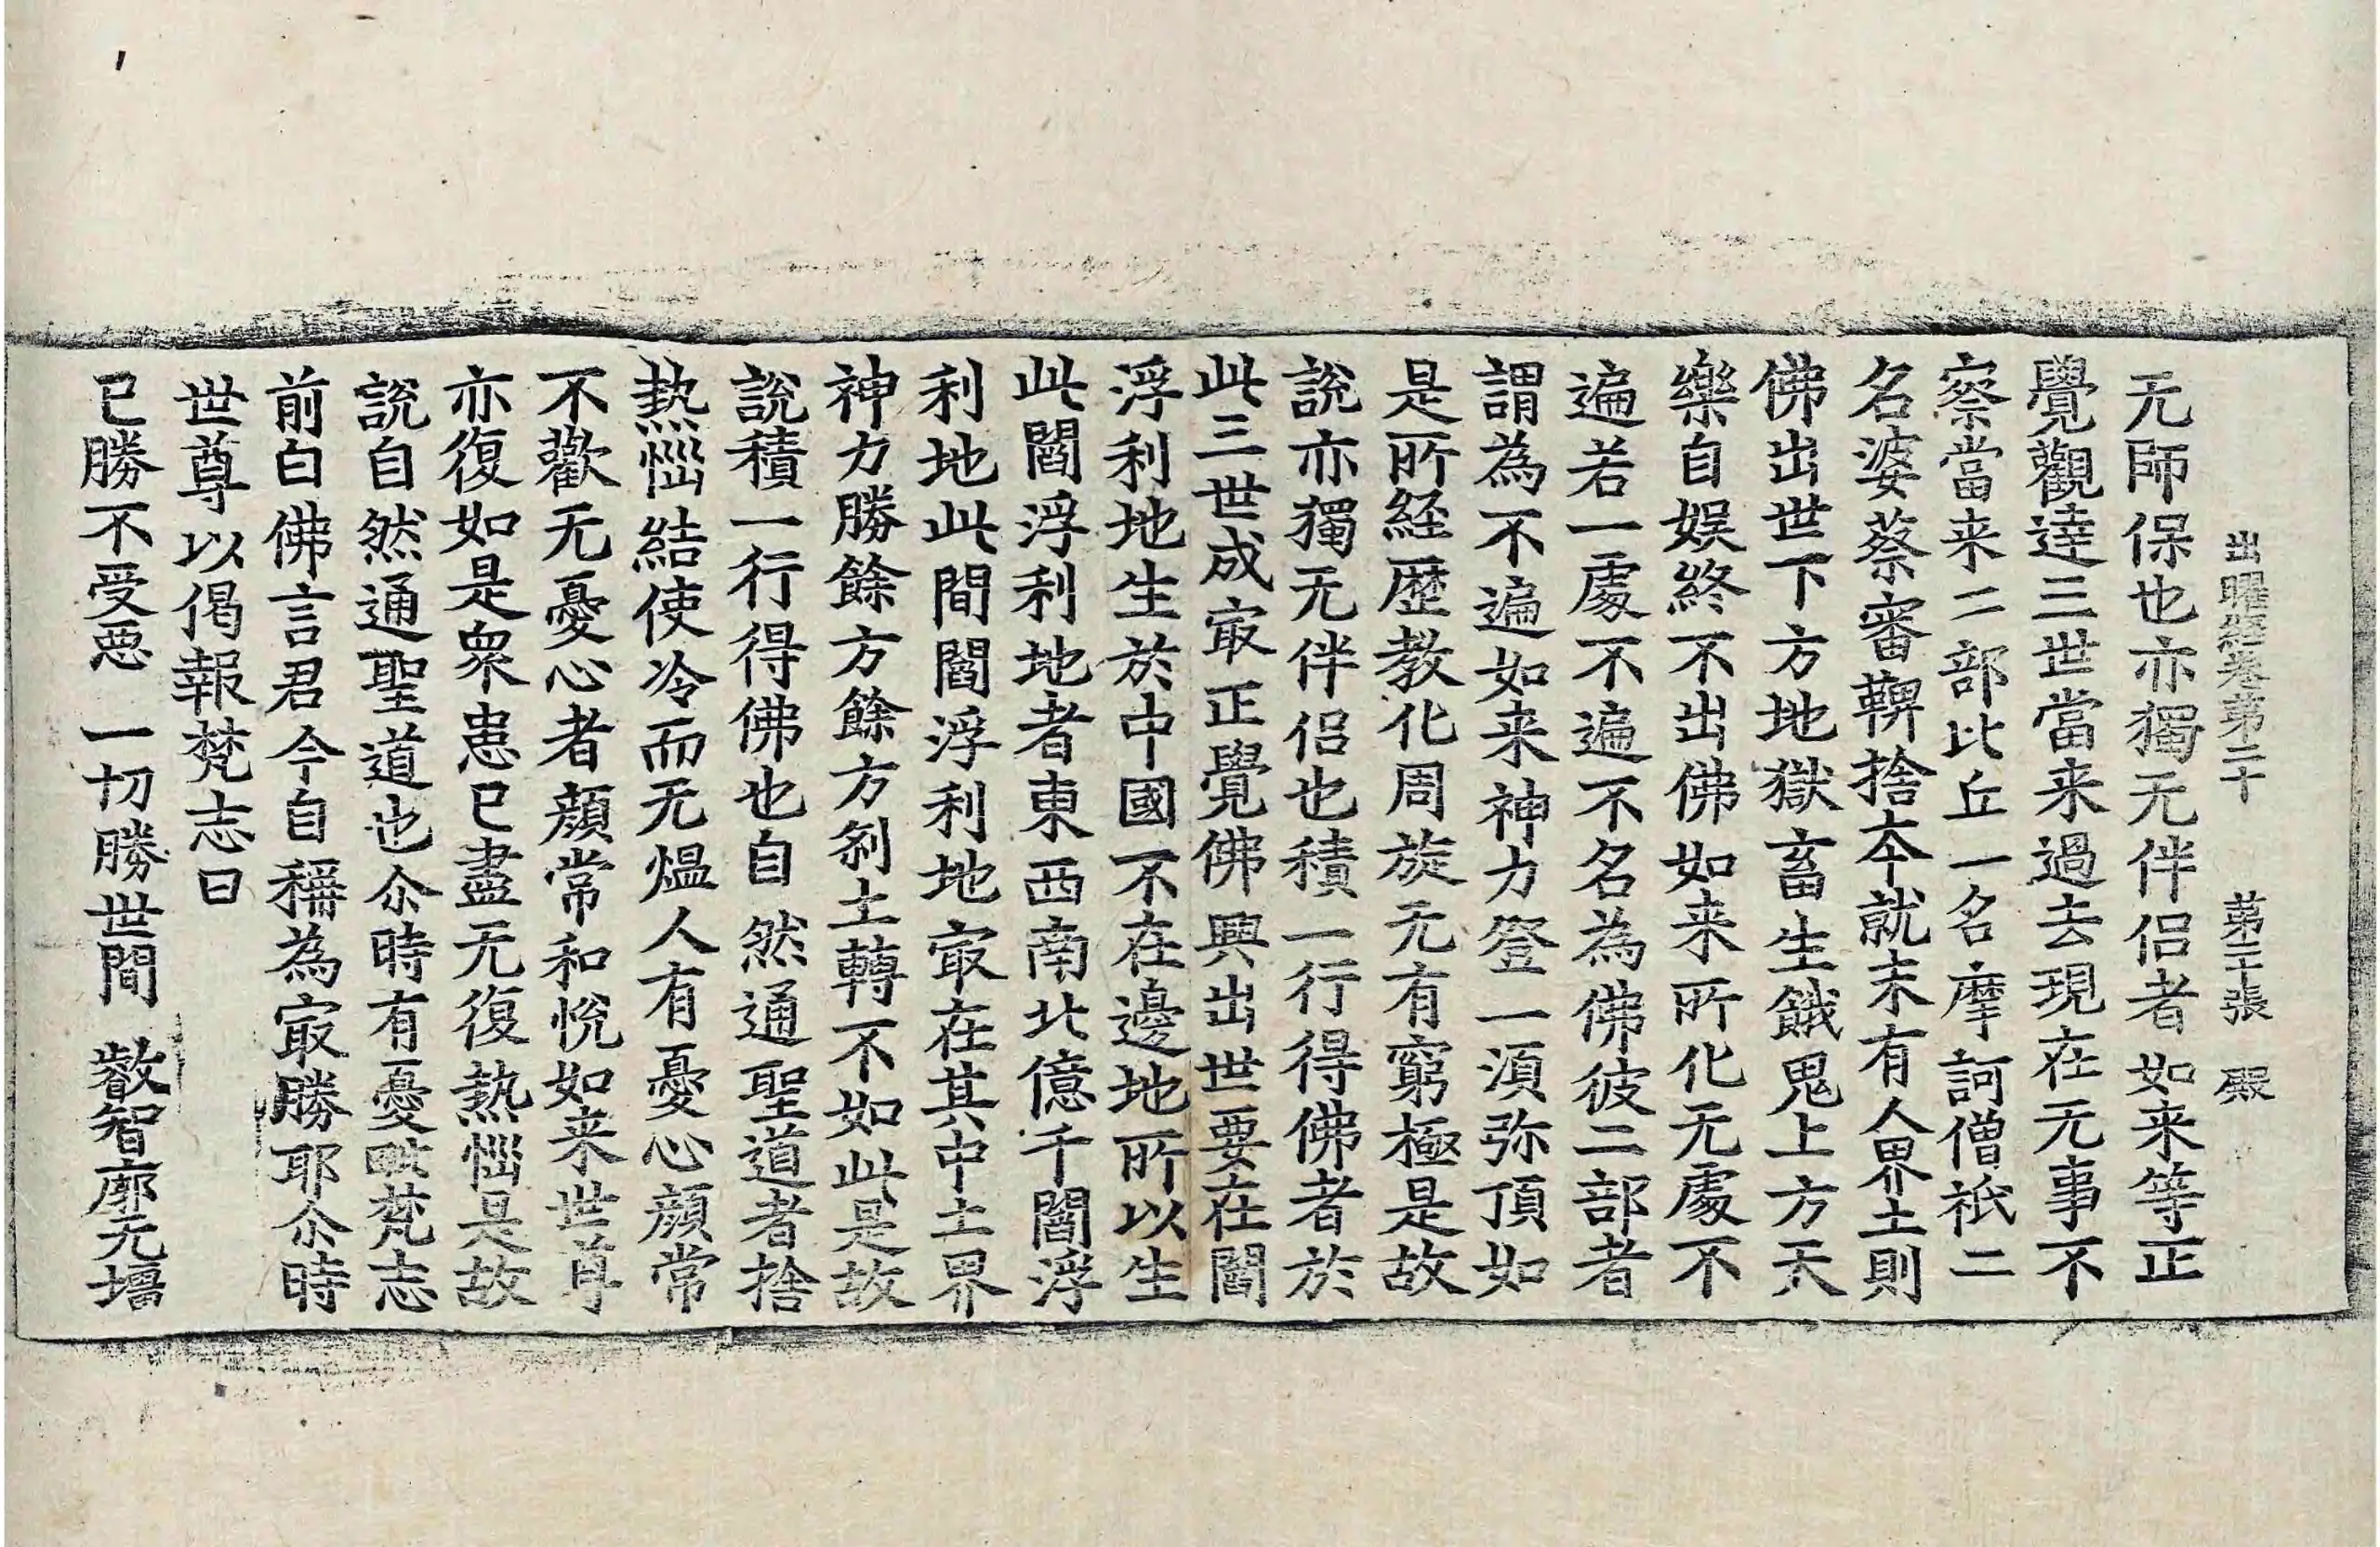 出曜經卷第二十　第二十張　殿
无師保也亦獨无伴侣者如来等正
覺觀達三世當来過去現在无事不
察當来二部比丘一名摩訶僧祇二
名婆蔡審鞞捨夲就末有人界土則
佛出世下方地獄畜生餓鬼上方天
樂自娛終不出佛如来所化无處不
遍若一處不遍不名為佛彼二部者
謂為不遍如来神力登一湏弥頂如
是所経歴教化周旋无有窮極是故
說亦獨无伴侣也積一行得佛者於
此三世成㝡正覺佛興出世要在閻
浮利地生於中國不在邊地所以生
此閻浮利地者東西南北億千閻浮
利地此間閻浮利地㝡在其中土界
神力勝餘方餘方刹土轉不如此是故
說積一行得佛也自然通聖道者捨
熱惱結使冷而无熅人有憂心顔常
不歡无憂心者顔常和悅如来世尊
亦復如是衆患已盡无復熱惱是故
說自然通聖道也尒時有憂毗梵志
前白佛言君今自稱為㝡勝耶尒時
世尊以偈報梵志曰
已勝不受惡　一切勝世間　叡智廓无壃